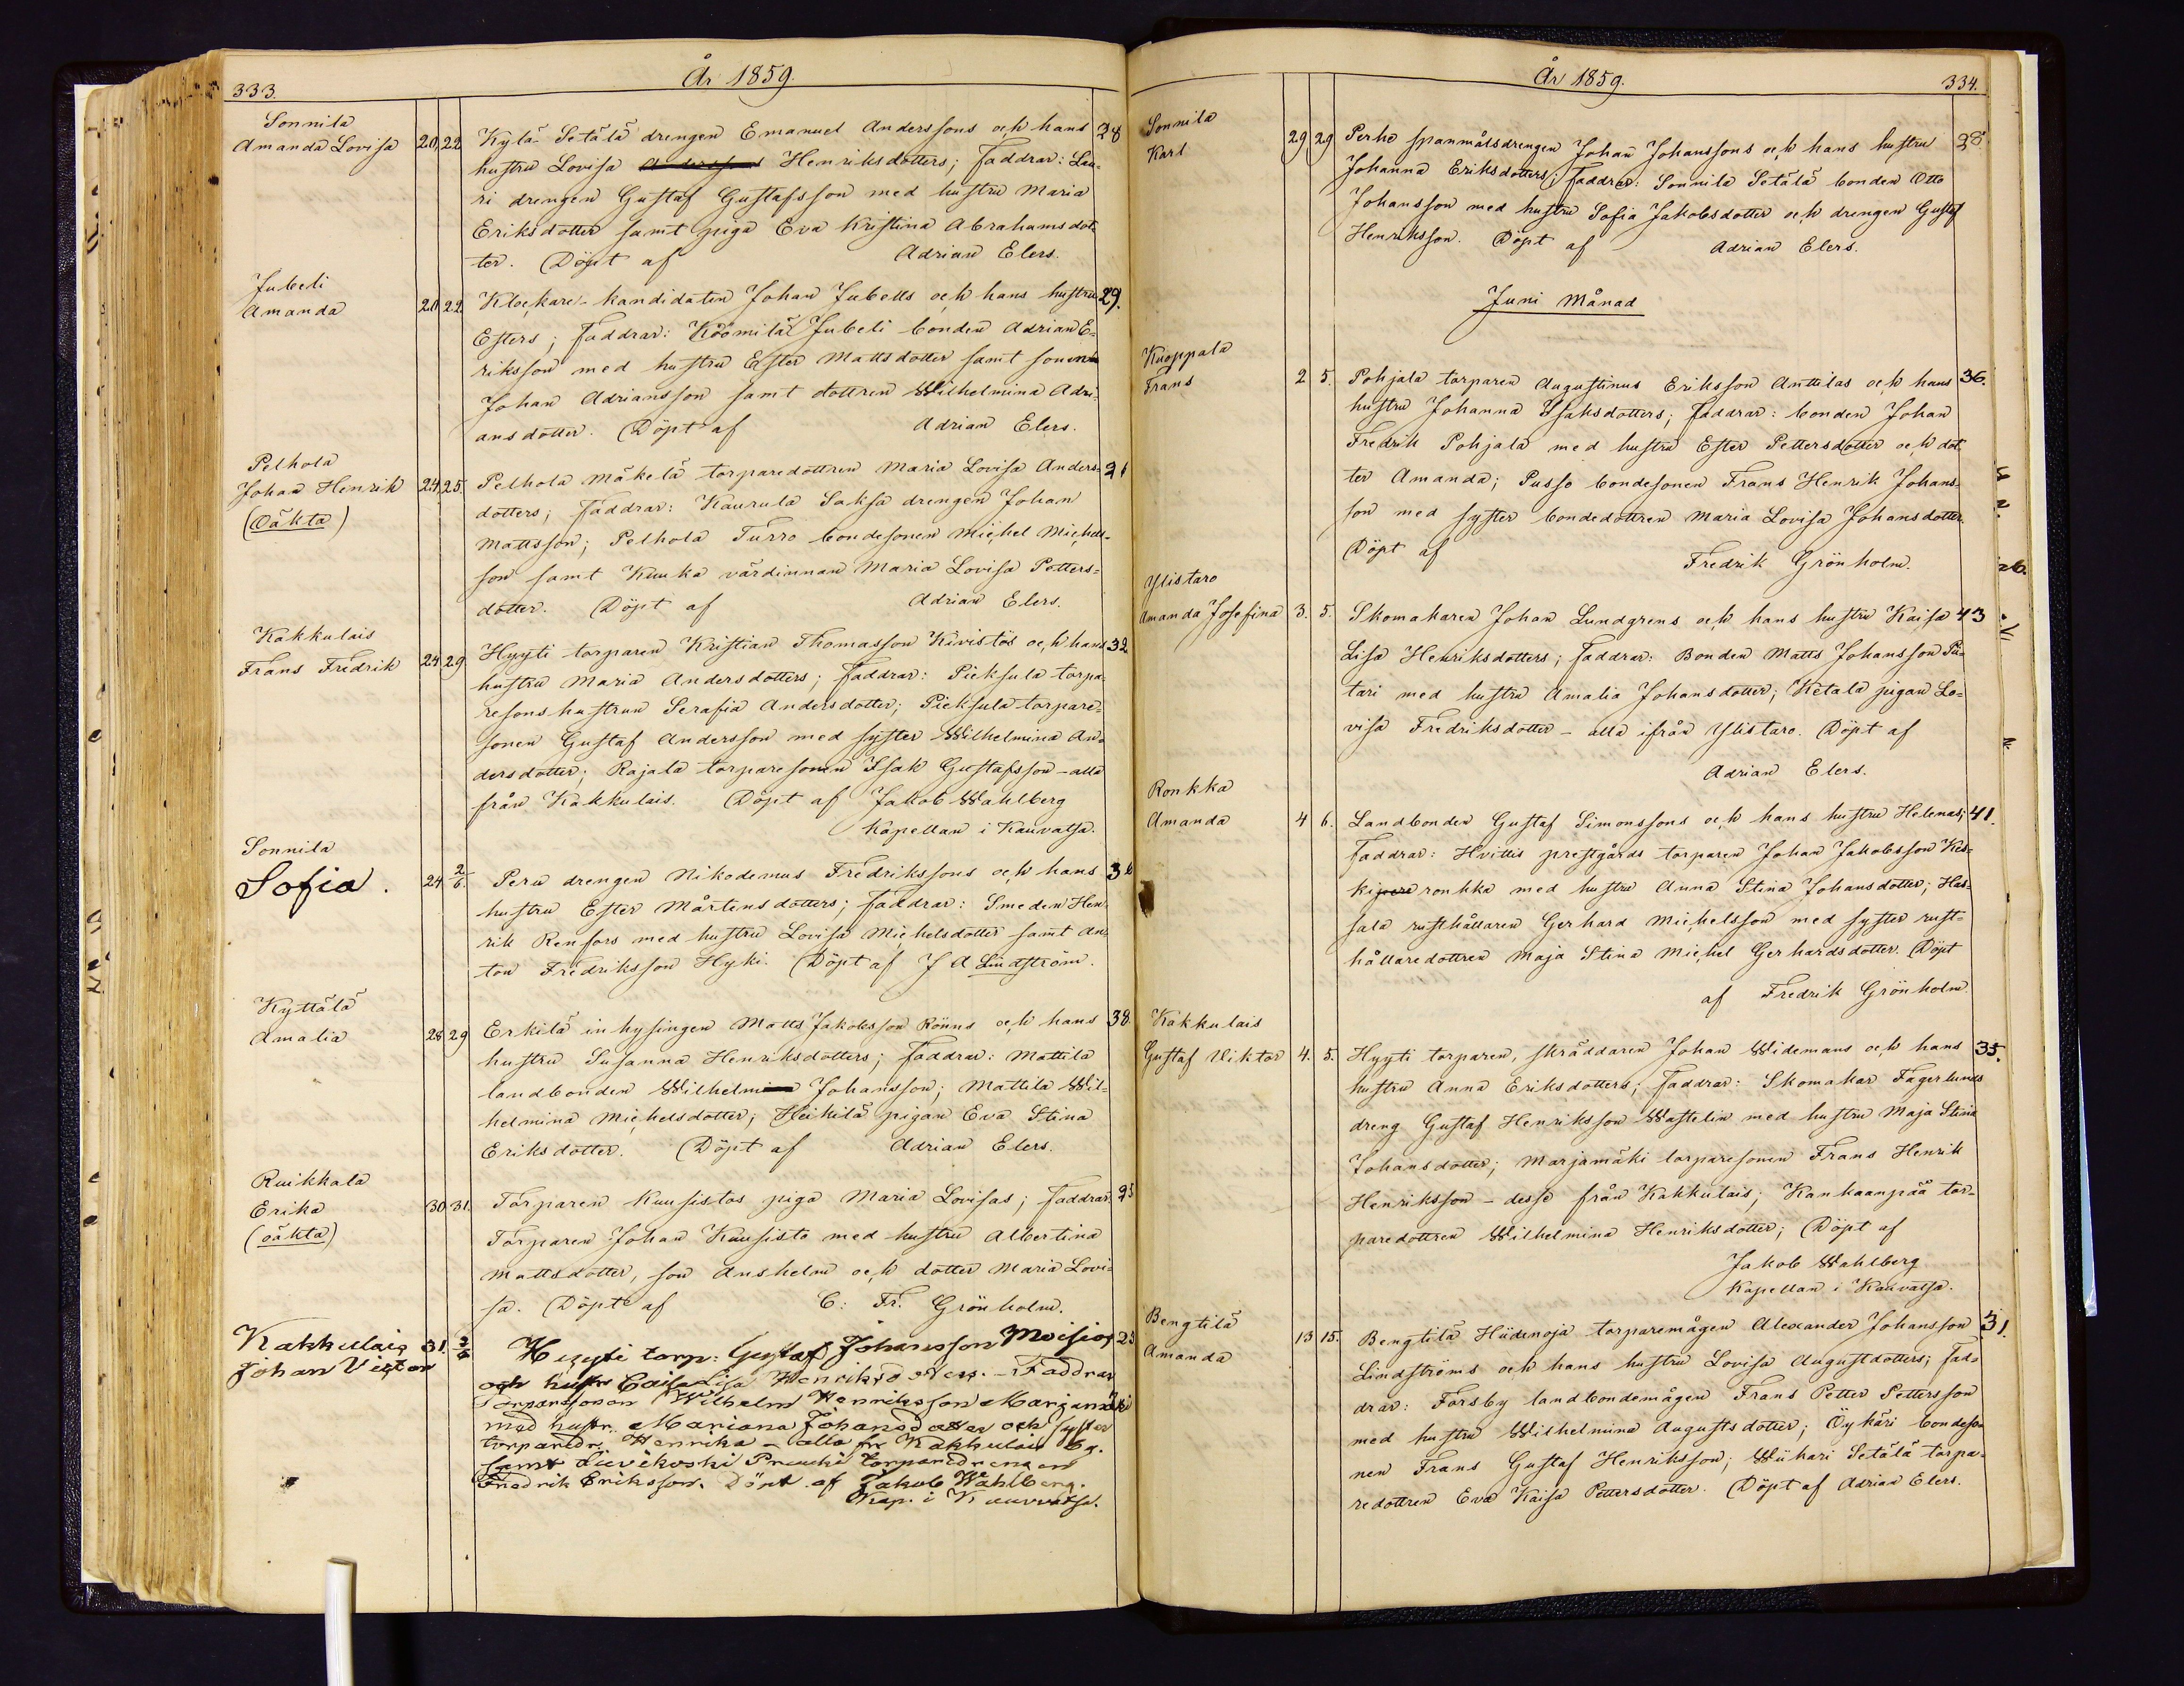 333.
År 1859.
Sonnila
Amanda Lovisa 20 22 Kylä-Setälä drengen Emanuel Anderssons och hans 28
hustru Lovisa Anderssons Henriksdotters; Faddrar: Lau-
ri drengen Gustaf Gustafsson med hustru Maria
Eriksdotter samt piga Eva Kristina Abrahamsdot-
ter. Döpt af Adrian Elers.
Jubeli
Amanda 20 22 Klockare-kandidaten Johan Jubells och hans hustru 29.
Esters; Faddrar: Köömilä Jubeli bonden Adrian E-
riksson med hustru Ester Mattsdotter samt sonen
Johan Adriansson samt dottren Wilhelmina Adri-
ansdotter. Döpt af Adrian Elers.
Pelhola
Johan Henrik 24 25. Pelhola Mäkelä torparedottren Maria Lovisa Anders- 21
(Oäkta) dotters; Faddrar: Kaurula Saksa drengen Johan
Mattsson; Pelhola Turro bondesonen Michel Michels-
son samt Kuuka värdinnan Maria Lovisa Petters-
dotter. Döpt af Adrian Elers.
Kakkulais
Frans Fredrik 24 29 Hyyti torparen Kristian Thomasson Kivistös och hans 32
hustru Maria Andersdotters; Faddrar: Pieksula torpa-
resonshustrun Serafia Andersdotter; Pieksula torpare-
sonen Gustaf Andersson med syster Wilhelmina An-
dersdotter; Rajala torparesonen Isak Gustafsson - alla
från Kakkulais. Döpt af Jakob Wahlberg
Kapellan i Kauvatsa.
Sonnila
Sofia. 24 2/6. Peru drengen Nikodemus Fredrikssons och hans 36
hustru Ester Mårtensdotters; Faddrar: Smeden Hen-
rik Renfors med hustru Lovisa Michelsdotter samt An-
ton Fredriksson Hyki. Döpt af J A Lindström.
Kyttälä
Amalia 28 29 Erkilä inhysingen Matts Jakobsson Rönns och hans 38.
hustru Susanna Henriksdotters; Faddrar: Mattila
landbonden Wilhelm Johansson; Mattila Wil-
helmina Michelsdotter; Heikilä pigan Eva Stina
Eriksdotter. Döpt af Adrian Elers.
Ruikkala
Erika 30 31. Torparen Kuusistos piga Maria Lovisas; Faddrar: 25
(oäkta) Torparen Johan Kuusisto med hustru Albertina
Mattsdotter, son Anshelm och dotter Maria Lovi-
sa. Döpt af C: Fr. Grönholm.
Kakkulais 31. 3/6 Hyyti torp: Gustaf Johansson Moisios 23
Johan Victor och hustr Caisa Lisa Henriksdotters. - Faddrar
Torparesonen Wilhelm Henriksson Marjamäki
med hustr. Mariana Johansdotter och syster
torparedr. Henrika - alla fr Kakkulais by.
samt torparedrengen
Fredrik Eriksson. Döpt af Jakob Wahlberg.
Kap. i Kauvatsa.
År 1859.
334.
Sonnila
Karl 29 29 Perho spanmålsdrengen Johan Johanssons och hans hustru 38
Johanna Eriksdotters; Faddrar: Sonnila Setälä bonden Otto
Johansson med hustru Sofia Jakobsdotter och drengen Gustaf
Henriksson. Döpt af Adrian Elers.
Juni Månad
Kuoppala
Frans 2 5. Pohjala torparen Augustinus Eriksson Anttilas och hans 36.
hustru Johanna Isaksdotters; Faddrar: bonden Johan
Fredrik Pohjala med hustru Ester Pettersdotter och dot-
ter Amanda; Pusso bondesonen Frans Henrik Johans-
son med syster bondedottren Maria Lovisa Johansdotter.
Döpt af Fredrik Grönholm.
Ylistaro
Amanda Josefina 3. 5. Skomakaren Johan Lundgrens och hans hustru Kaisa 43
Lisa Henriksdotters; Faddrar: Bonden Matts Johansson Pu-
tari med hustru Amalia Johansdotter; Ketala pigan Lo-
visa Fredriksdotter - alla ifrån Ylistaro. Döpt af
Adrian Elers.
Ronkka
Amanda 4 6. Landbonden Gustaf Simonssons och hans hustru Helenas; 41.
Faddrar: Hvittis prestgårds torparen Johan Jakobsson Kes-
kironkka med hustru Anna Stina Johansdotter; Has-
sala rusthållaren Gerhard Michelsson med syster rust-
hållaredottren Maja Stina Michel Gerhardsdotter. Döpt
af Fredrik Grönholm.
Kakkulais
Gustaf Viktor 4. 5. Hyyti torparen, skräddaren Johan Widemans och hans 35.
hustru Anna Eriksdotters; Faddrar: Skomakar Fagerlunds
dreng Gustaf Henriksson Wastelin med hustru Maja Stina
Johansdotter; Marjamäki torparesonen Frans Henrik
Henriksson - desse från Kakkulais; Kankaanpää tor-
paredottren Wilhelmina Henriksdotter; Döpt af
Jakob Wahlberg
Kapellan i Kauvatsa.
Bengtilä
Amanda 13 15. Bengtilä Hiidenoja torparemågen Alexander Johansson 31.
Lindströms och hans hustru Lovisa Augustdotters; Fad-
drar: Forsby landbondemågen Frans Petter Pettersson
med hustru Wilhelmina Augustsdotter; Öykäri bondeso-
nen Frans Gustaf Henriksson; Wiikari Setälä torpa-
redottren Eva Kaisa Pettersdotter. Döpt af Adrian Elers.